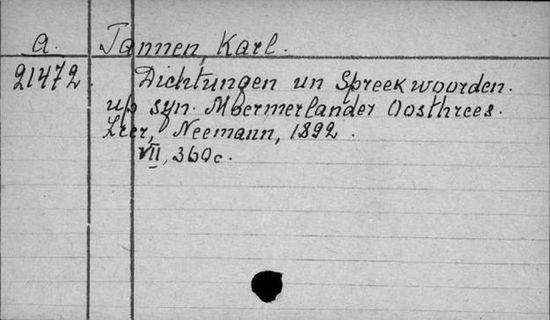 A. Tannen, Karl.
21472. Dichtungen un Spreekwoorden.
up syn Moermerlander Oosthrees.
Leer, Neemann, 1892.
VII, 360 c.